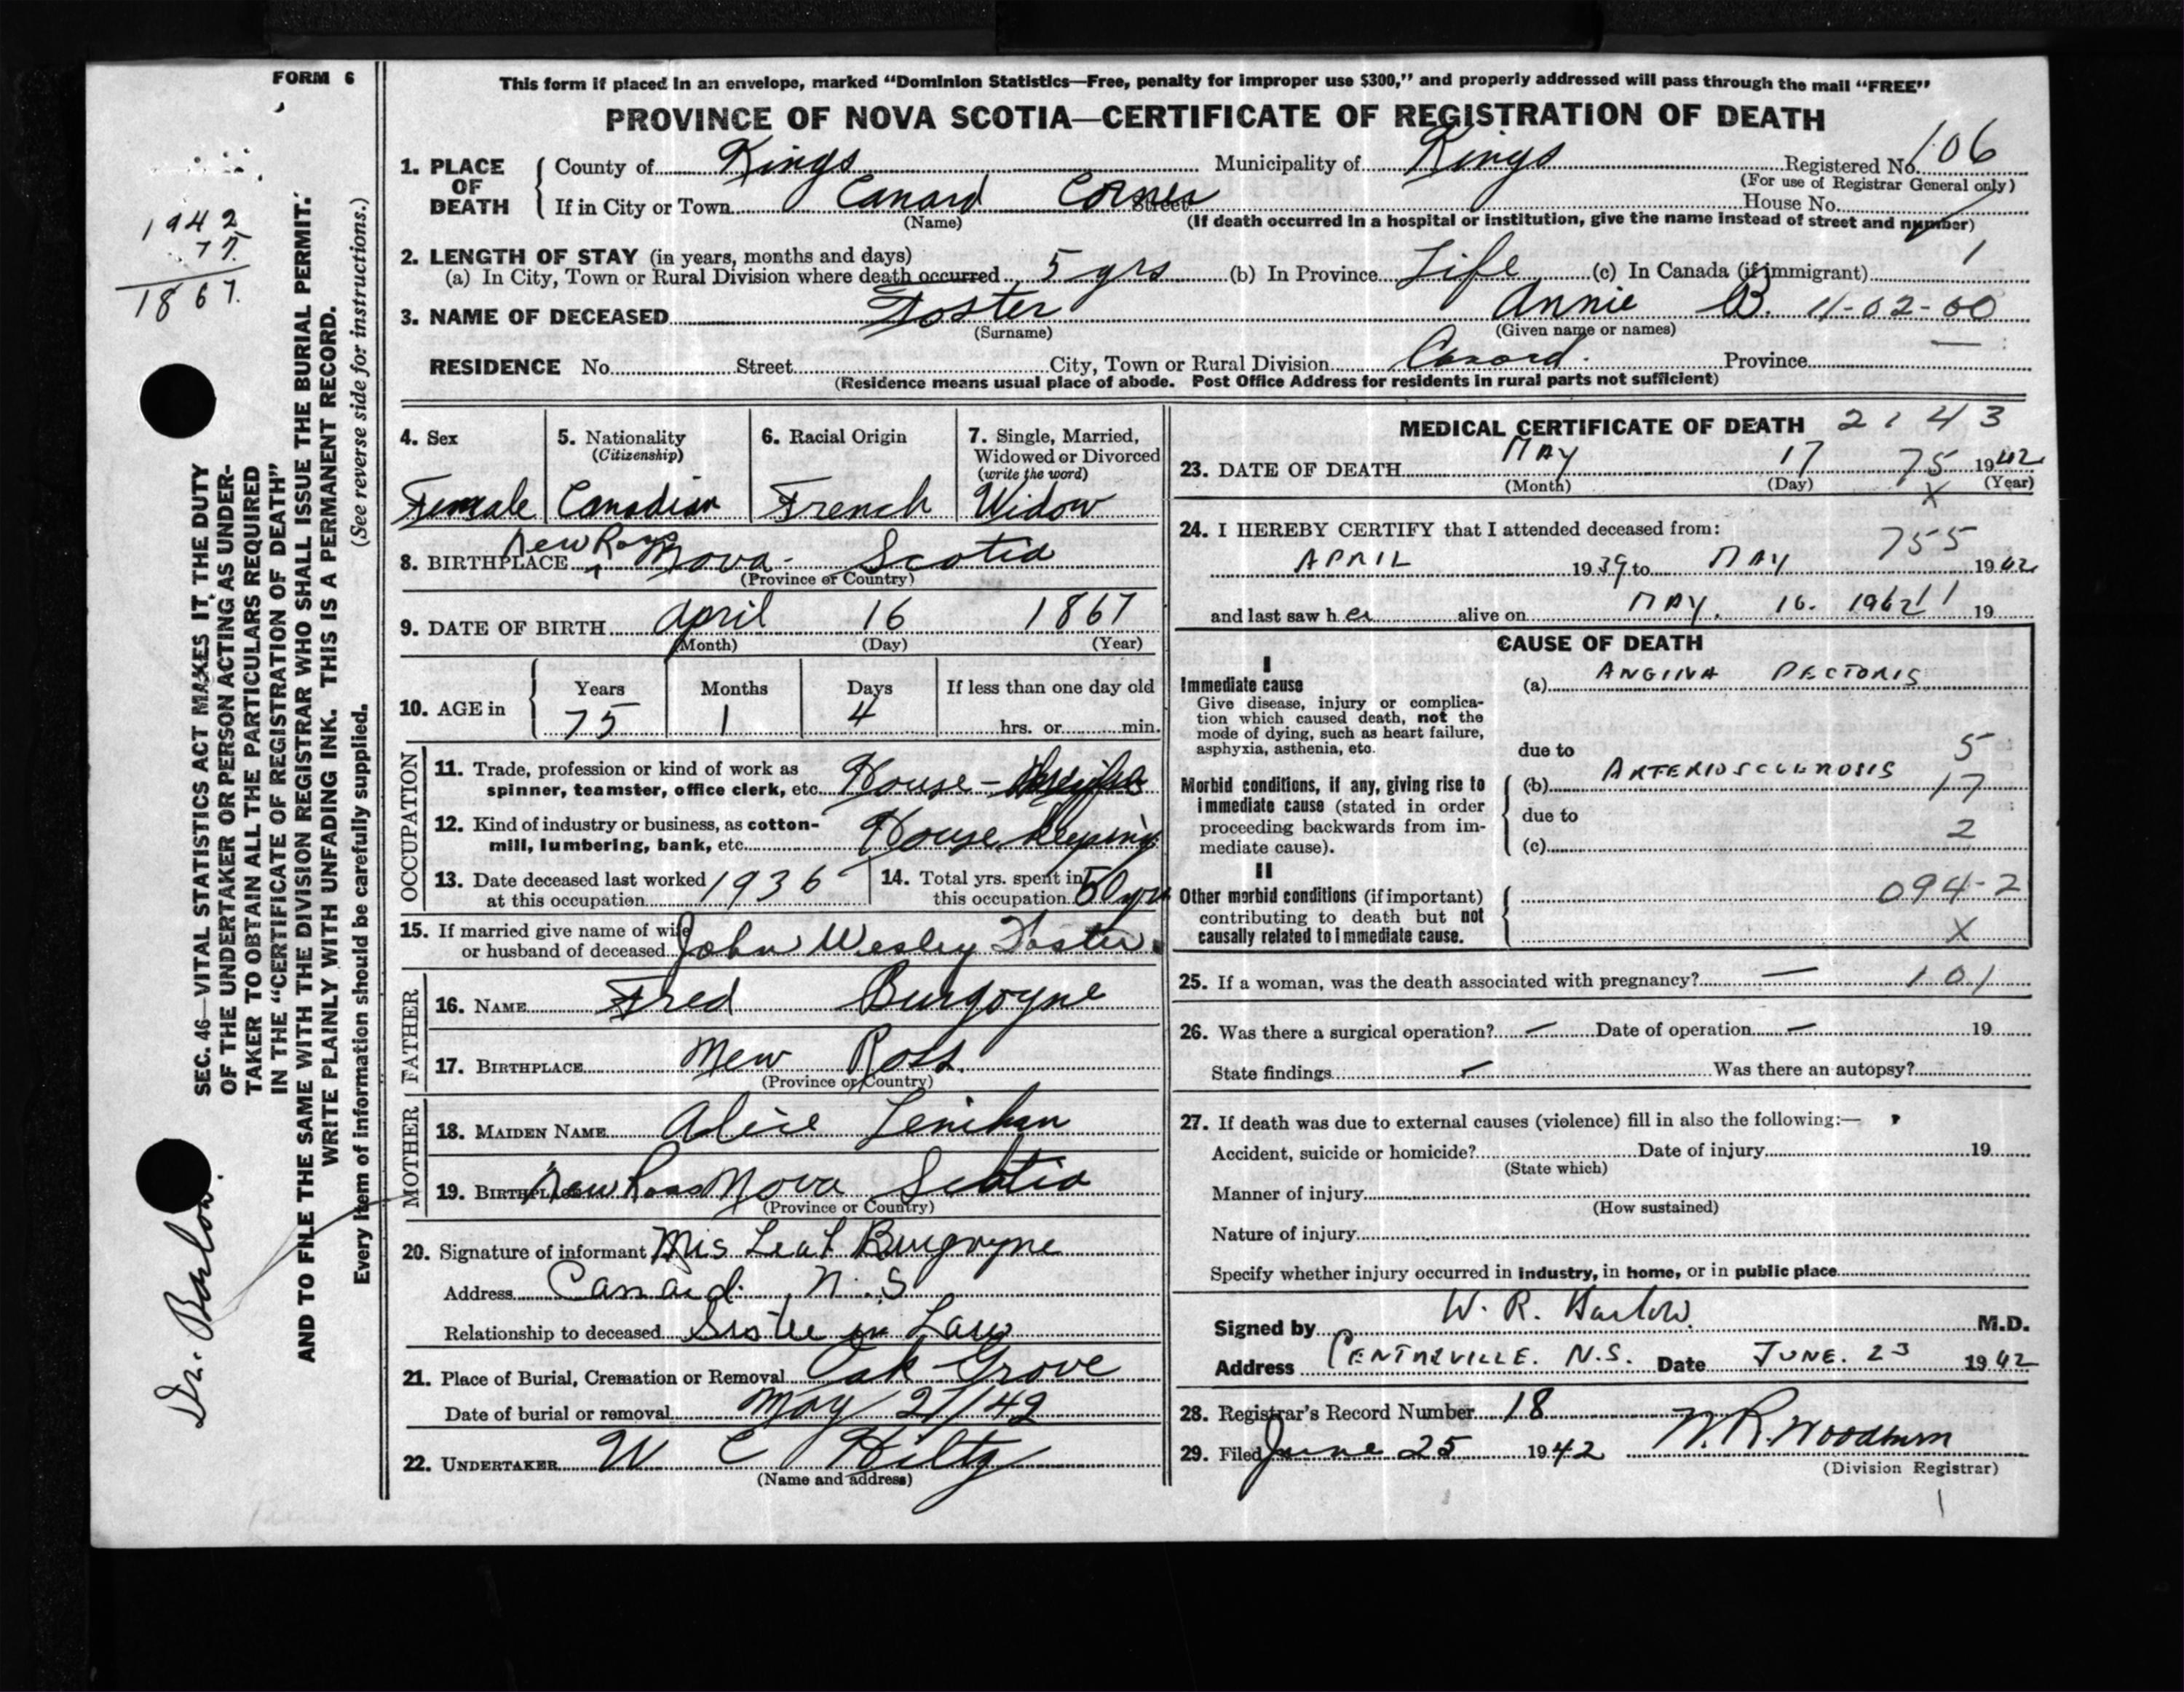 FORM 6
This form if placed in an envelope, marked “Dominion Statistics—Free, penalty for improper use $300,” and properly addressed will pass through the mail “FREE”
PROVINCE OF NOVA SCOTIA—CERTIFICATE OF REGISTRATION OF DEATH
1942
77
1867.
SEC. 46—VITAL STATISTICS ACT MAKES IT THE DUTY
OF THE UNDERTAKER OR PERSON ACTING AS UNDER-
TAKER TO OBTAIN ALL THE PARTICULARS REQUIRED
IN THE “CERTIFICATE OF REGISTRATION OF DEATH”
AND TO FILE THE SAME WITH THE DIVISION REGISTRAR WHO SHALL ISSUE THE BURIAL PERMIT.
WRITE PLAINLY WITH UNFADING INK. THIS IS A PERMANENT RECORD.
Every item of information should be carefully supplied. (See reverse side for instructions.)
Dr. Barlow.
1. PLACE OF DEATH
County of Kings Municipality of Kings Registered No. 106
(For use of Registrar General only)
If in City or Town Canard Corner Street House No.
(Name) (If death occurred in a hospital or institution, give the name instead of street and number)
2. LENGTH OF STAY (in years, months and days) 1
(a) In City, Town or Rural Division where death occurred 5 yrs (b) In Province Life (c) In Canada (if immigrant)
3. NAME OF DECEASED Foster Annie B. 11-02-00
(Surname) (Given name or names)
RESIDENCE No. Street City, Town or Rural Division Canard. Province
(Residence means usual place of abode. Post Office Address for residents in rural parts not sufficient)
4. Sex 5. Nationality 6. Racial Origin 7. Single, Married,
(Citizenship) Widowed or Divorced
(write the word)
Female Canadian French Widow
New Ross
8. BIRTHPLACE Nova Scotia
(Province or Country)
9. DATE OF BIRTH April 16 1867
(Month) (Day) (Year)
Years Months Days If less than one day old
10. AGE in 75 1 4 hrs. or min.
OCCUPATION
11. Trade, profession or kind of work as
spinner, teamster, office clerk, etc. House-
12. Kind of industry or business, as cotton-
mill, lumbering, bank, etc. House keeping
13. Date deceased last worked 1936 14. Total yrs. spent in
at this occupation this occupation 50 yrs
15. If married give name of wife
or husband of deceased John Wesley Foster
FATHER
16. NAME Fred Burgoyne
17. BIRTHPLACE New Ross.
(Province or Country)
MOTHER
18. MAIDEN NAME Alice Lenihan
19. BIRTHPLACE New Ross Nova Scotia
(Province or Country)
20. Signature of informant Mrs Burgoyne
Address Canard. N.S
Relationship to deceased Sister in Law
21. Place of Burial, Cremation or Removal Oak Grove
Date of burial or removal May 21/42
22. UNDERTAKER W C Hiltz
(Name and address)
MEDICAL CERTIFICATE OF DEATH 2143
23. DATE OF DEATH MAY 17 75 1942
(Month) (Day) X (Year)
24. I HEREBY CERTIFY that I attended deceased from:
755
APRIL 1939 to MAY 1942
and last saw her alive on MAY. 16. 1942 11 19
CAUSE OF DEATH
I
Immediate cause (a) ANGINA PECTORIS
Give disease, injury or complica-
tion which caused death, not the
mode of dying, such as heart failure,
asphyxia, asthenia, etc. due to 5
Morbid conditions, if any, giving rise to (b) ARTERIOSCLEROSIS 17
immediate cause (stated in order
proceeding backwards from im- due to
mediate cause). (c) 2
II
Other morbid conditions (if important) 094-2
contributing to death but not
causally related to immediate cause. X
25. If a woman, was the death associated with pregnancy? — 101
26. Was there a surgical operation? — Date of operation — 19
State findings — Was there an autopsy?
27. If death was due to external causes (violence) fill in also the following:—
Accident, suicide or homicide? Date of injury 19
(State which)
Manner of injury
(How sustained)
Nature of injury
Specify whether injury occurred in industry, in home, or in public place
Signed by W. R. Barlow. M.D.
Address CENTREVILLE. N.S. Date JUNE. 23 1942
28. Registrar's Record Number 18
29. Filed June 25 1942 Woodburn
(Division Registrar)